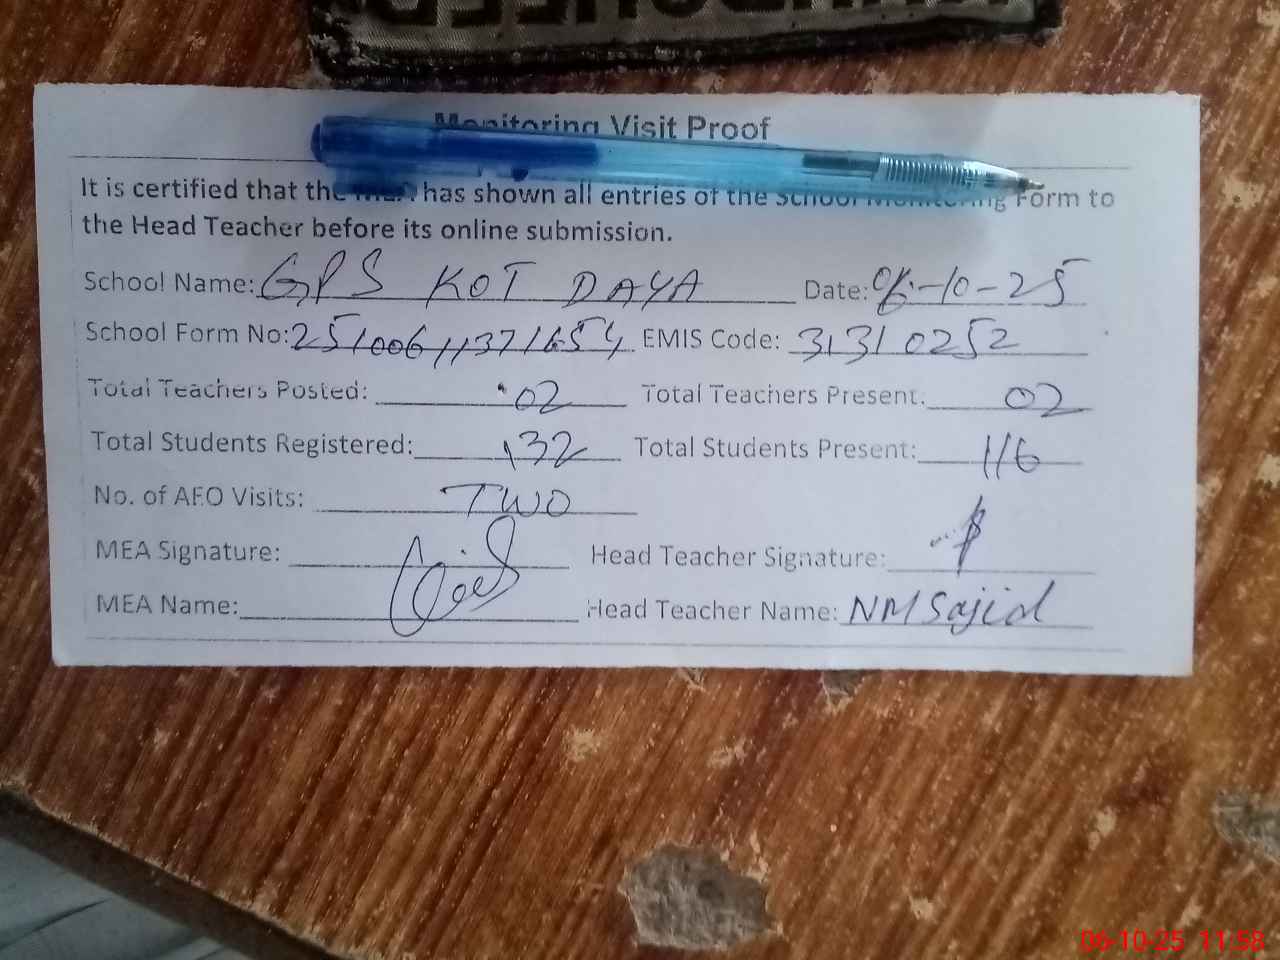 Monitoring Visit Proof
It is certified that the MEA has shown all entries of the School Monitoring Form to
the Head Teacher before its online submission.
School Name: GPS KOT DAYA Date: 06-10-25
School Form No: 25100611371654 EMIS Code: 31310252
Total Teachers Posted: 02 Total Teachers Present: 02
Total Students Registered: 132 Total Students Present: 116
No. of AEO Visits: TWO
MEA Signature: Head Teacher Signature:
MEA Name: Head Teacher Name: NM Sajid
06-10-25 11:58